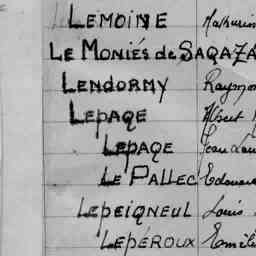 LEMOINE Mathurin
LE MONIÉS de SAGAZA
LENDORMY Raymon
LEPAGE Albert
LEPAGE Jean Lou
LE PALLEC Edouard
LEPEIGNEUL Louis
LEPÉROUX Emile